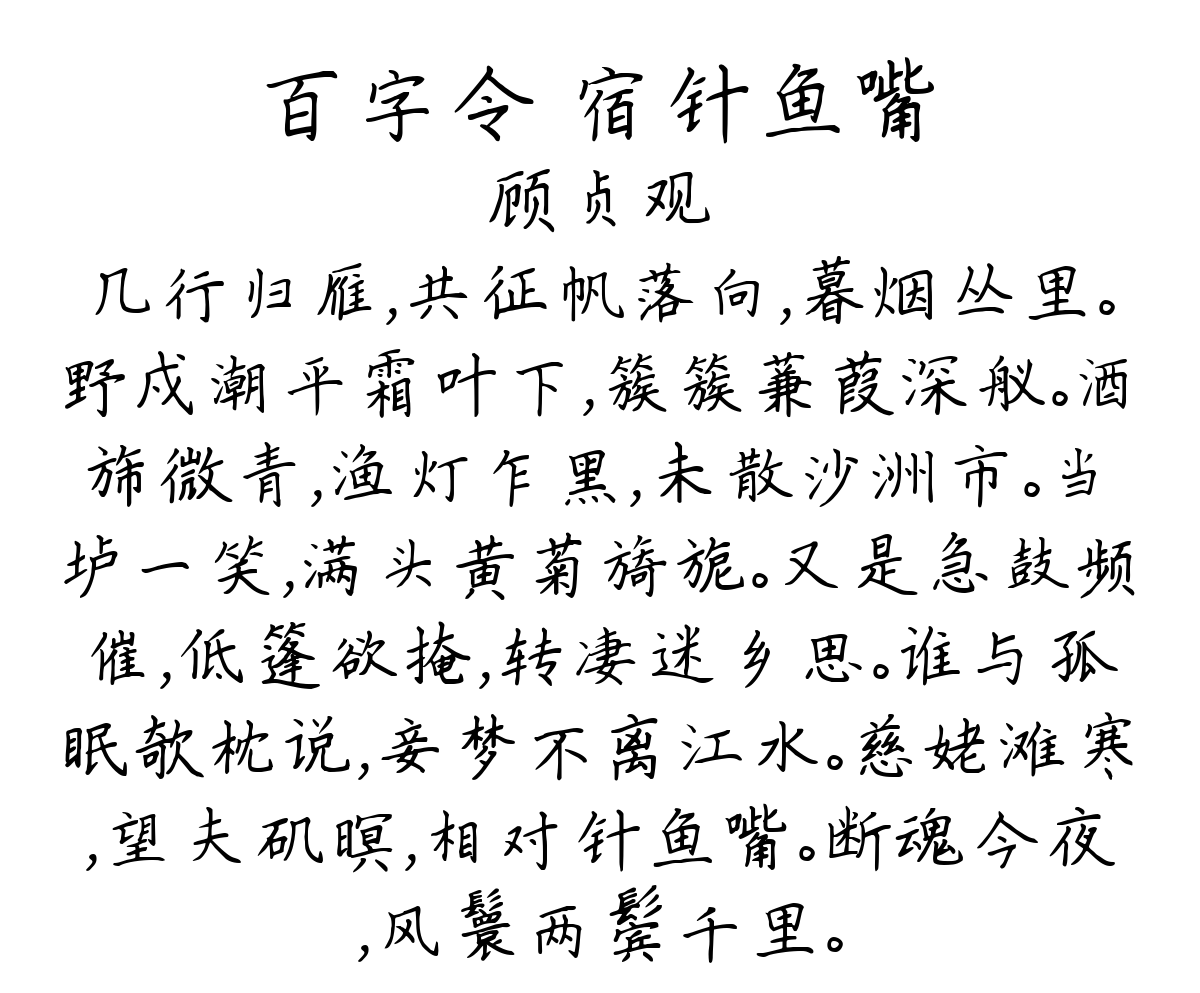 百字令 宿针鱼嘴
顾贞观
几行归雁,共征帆落向,暮烟丛里。
野戍潮平霜叶下,簇簇蒹葭深舣。酒
旆微青,渔灯乍黑,未散沙洲市。当
垆一笑,满头黄菊旖旎。又是急鼓频
催,低篷欲掩,转凄迷乡思。谁与孤
眠欹枕说,妾梦不离江水。慈姥滩寒
,望夫矶暝,相对针鱼嘴。断魂今夜
,风鬟两鬓千里。